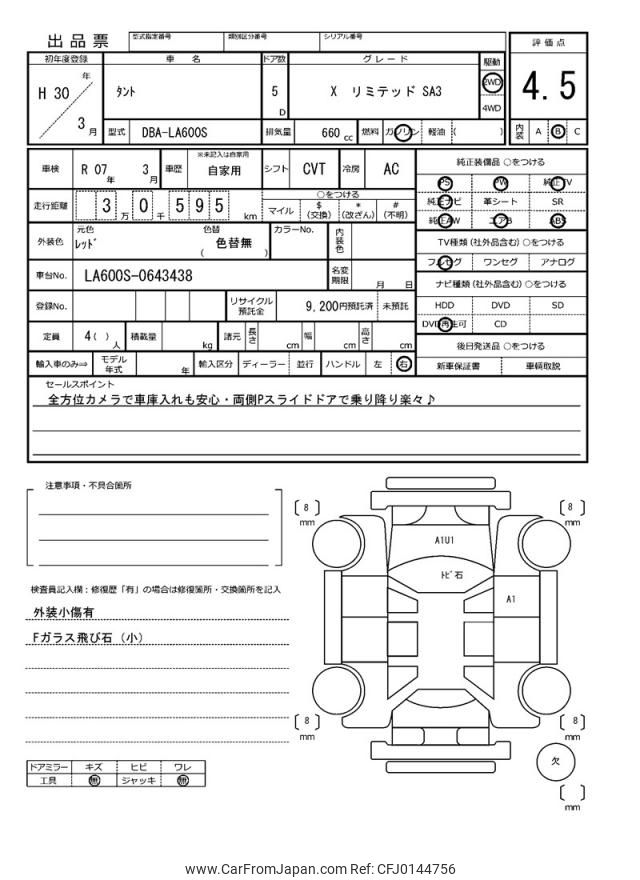 出品票 型式指定番号 類別区分番号 シリアル番号
評価点
初年度登録 車名 ドア数 グレード 駆動
H 30 年 3 月 タント 5 D X リミテッド SA3 2WD 4WD
4.5
型式 DBA-LA600S 排気量 660 cc 燃料 ガソリン 軽油 ( )
内装 A B C
車検 R 07 年 3 月 車歴 ※未記入は自家用 自家用 シフト CVT 冷房 AC
走行距離 3 万 0 千 595 km ○をつける マイル $ (交換) * (改ざん) # (不明)
外装色 元色 レッド 色替 色替無 ( ) カラーNo. 内装色
車台No. LA600S-0643438 名変期限 月 日
登録No. リサイクル預託金 9,200円預託済 未預託
定員 4 ( ) 人 積載量 kg 諸元 長さ cm 幅 cm 高さ cm
輸入車のみ⇒ モデル年式 年 輸入区分 ディーラー 並行 ハンドル 左 右
純正装備品 ○をつける
PS PW 純正TV
純正ナビ 革シート SR
純正AW エアB ABS
TV種類 (社外品含む) ○をつける
フルセグ ワンセグ アナログ
ナビ種類 (社外品含む) ○をつける
HDD DVD SD
DVD再生可 CD
後日発送品 ○をつける
新車保証書 車輌取説
セールスポイント
全方位カメラで車庫入れも安心・両側Pスライドドアで乗り降り楽々♪
注意事項・不具合箇所
検査員記入欄：修復歴「有」の場合は修復箇所・交換箇所を記入
外装小傷有
Fガラス飛び石（小）
ドアミラー キズ ヒビ ワレ
工具 無 ジャッキ 無
[ 8 ] mm
[ 8 ] mm
A1U1
トビ石
A1
[ 8 ] mm
[ 8 ] mm
欠
[ ] mm
www.CarFromJapan.com Ref: CFJ0144756